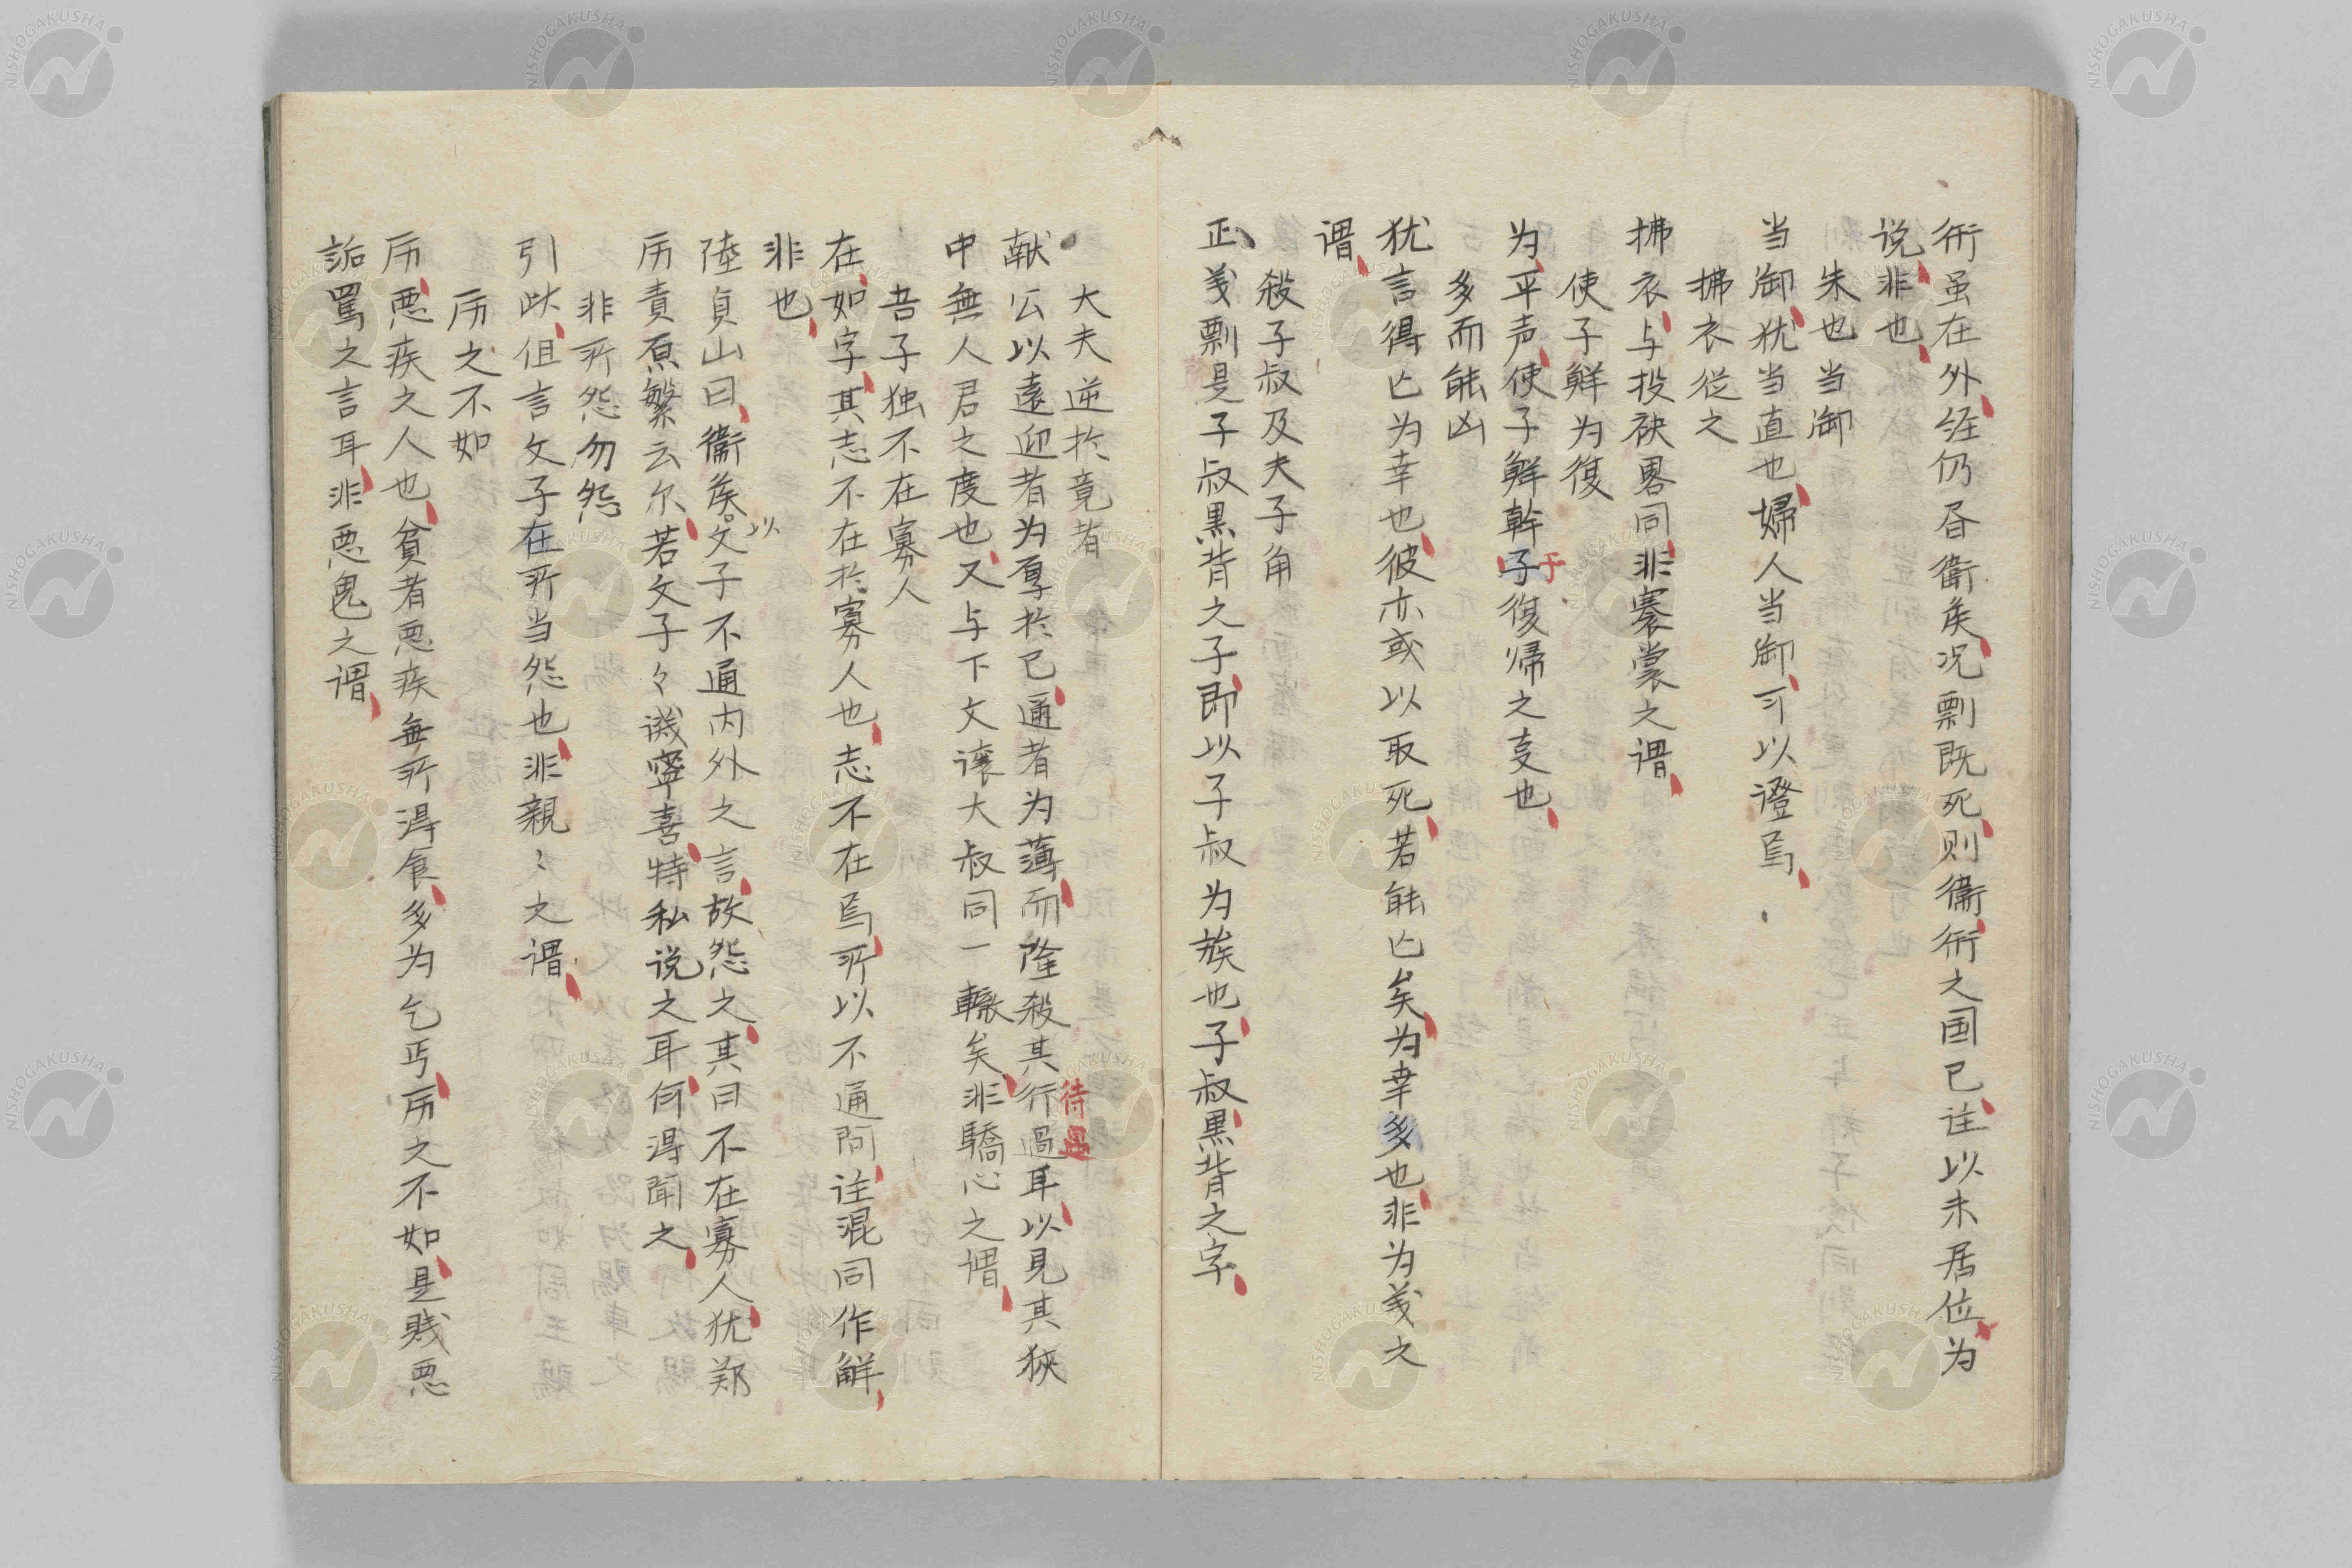 衎虽在外経仍君衞矦况剽既死则衞衎之国已注以未居位为
说非也
朱也当御
当御犹当直也婦人当御可以證焉
拂衣従之
拂衣与投袂畧同非褰裳之谓
使子鮮为復
为平声使子鮮幹子復帰之支也
于
多而能凶
犹言得亡为幸也彼亦或以取死若能亡矣为幸多也非为義之
谓
殺子叔及夫子角
正義剽是子叔黒背之子即以子叔为族也子叔黒背之字
大夫逆於竟者
献公以遠迎者为厚於已通者为薄而隆殺其行過耳以見其狹
待遇
中無人君之度也又与下文讓大叔同一轍矣非驕心之谓
吾子独不在寡人
在如字其志不在於寡人也志不在焉所以不通问注混同作解
非也
陸貞山曰衞矦以文子不通内外之言故怨之其曰不在寡人犹郑
厉責原繁云尔若文子々譏寧喜特私说之耳何得聞之
非所怨勿怨
引此伹言文子在所当怨也非親々之谓
厉之不如
厉悪疾之人也貧者悪疾無所得食多为乞丐厉之不如是賎悪
詬罵之言耳非悪鬼之谓
NISHOGAKUSHA